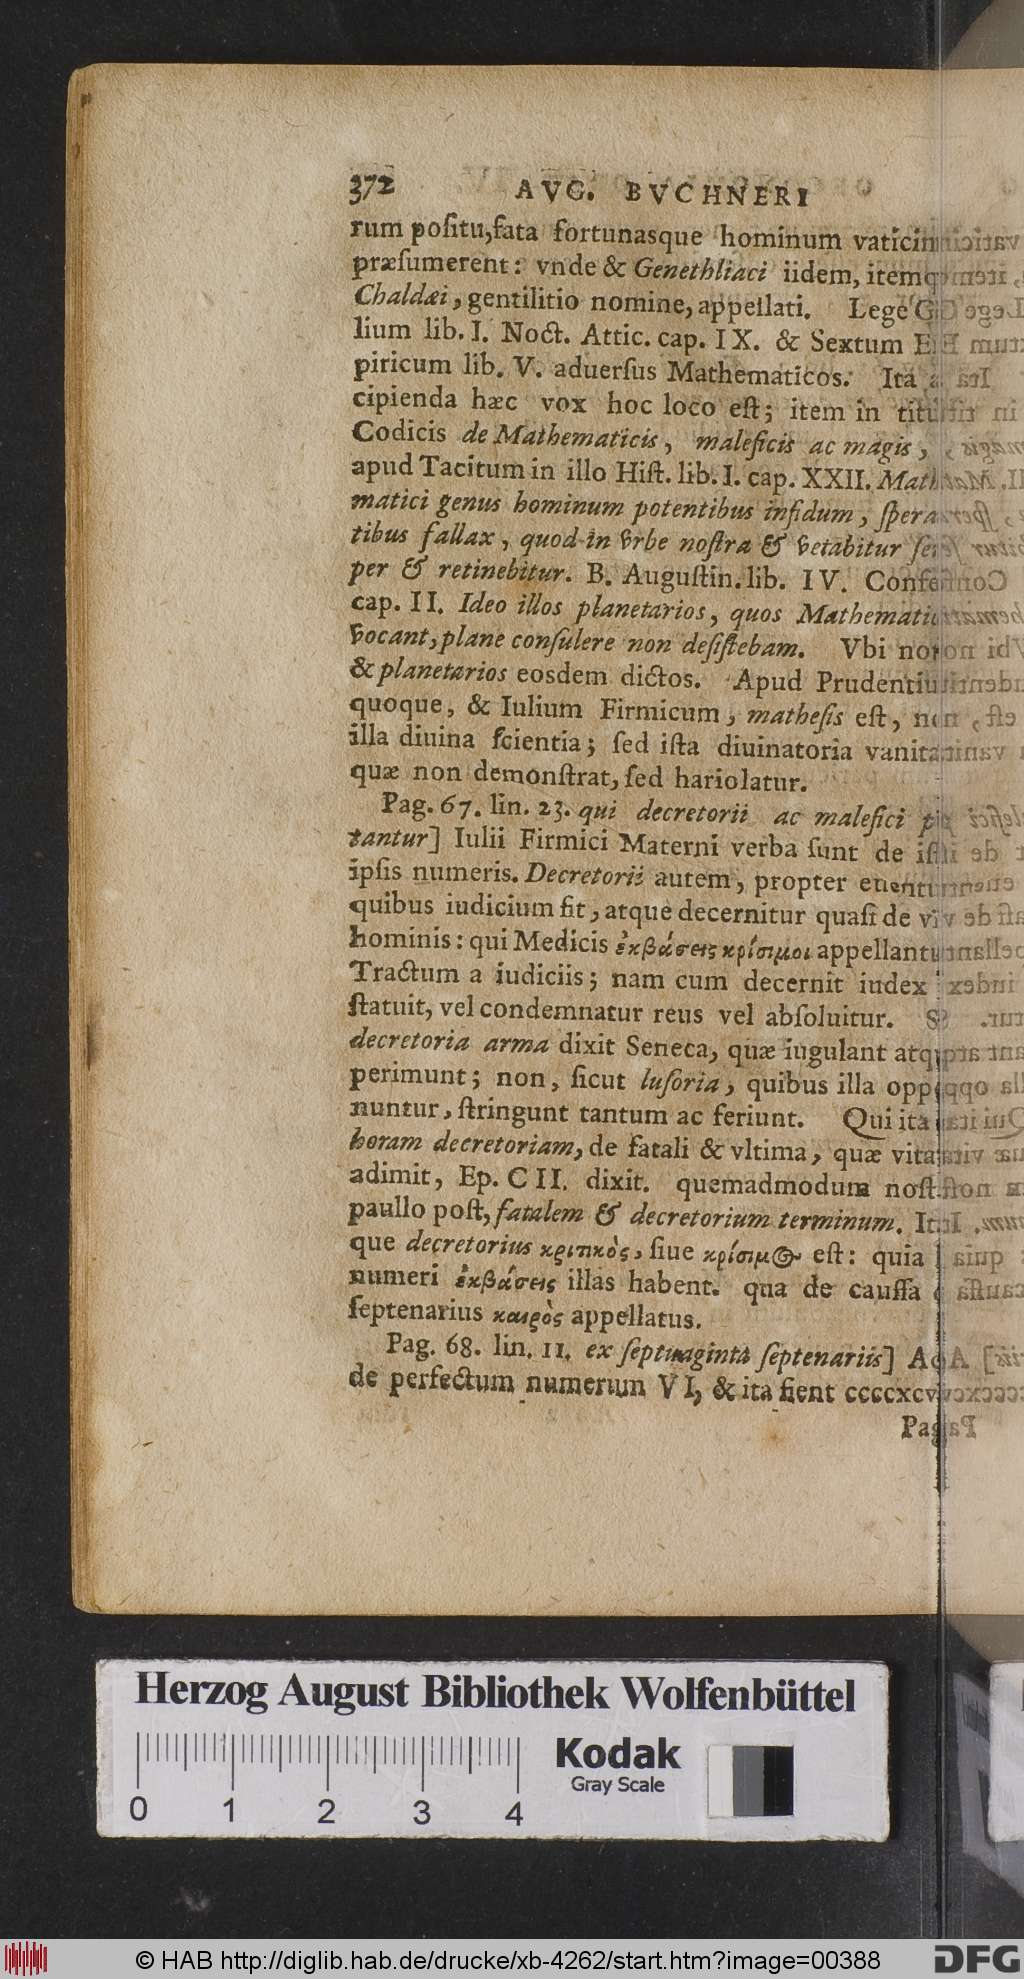 372 AVG. BVCHNERI
rum poſitu, fata fortunasque hominum vaticin
præſumerent: vnde & Genethliaci iidem, item
Chaldæi, gentilitio nomine, appellati. Lege G
lium lib. I. Noct. Attic. cap. IX. & Sextum E
piricum lib. V. aduerſus Mathematicos. Ita a
cipienda hæc vox hoc loco eſt; item in titu
Codicis de Mathematicis, maleficis ac magis,
apud Tacitum in illo Hiſt. lib. I. cap. XXII. Math
matici genus hominum potentibus infidum, ſpera
tibus fallax, quod in vrbe noſtra & vetabitur ſe
per & retinebitur. B. Auguſtin. lib. IV. Confe
cap. II. Ideo illos planetarios, quos Mathematic
vocant, plane conſulere non deſiſtebam. Vbi no
& planetarios eosdem dictos. Apud Prudentiu
quoque, & Iulium Firmicum, matheſis eſt, non
illa diuina ſcientia; ſed iſta diuinatoria vanita
quæ non demonſtrat, ſed hariolatur.
Pag. 67. lin. 23. qui decretorii ac malefici p
tantur] Iulii Firmici Materni verba ſunt de iſti
ipſis numeris. Decretorii autem, propter euent
quibus iudicium fit, atque decernitur quaſi de v
hominis: qui Medicis ἐκβάσεις κρίσιμοι appellantu
Tractum a iudiciis; nam cum decernit iudex
ſtatuit, vel condemnatur reus vel abſoluitur. S
decretoria arma dixit Seneca, quæ iugulant atq
perimunt; non, ſicut luſoria, quibus illa opp
nuntur, ſtringunt tantum ac feriunt. Qui ita
horam decretoriam, de fatali & vltima, quæ vita
adimit, Ep. CII. dixit. quemadmodum noſt
paullo poſt, fatalem & decretorium terminum. It
que decretorius κριτικὸς, ſiue κρίσιμος eſt: quia
numeri ἐκβάσεις illas habent. qua de cauſſa
ſeptenarius καιρὸς appellatus.
Pag. 68. lin. 11. ex ſeptuaginta ſeptenariis] A
de perfectum numerum VI, & ita fient ccccxcv
Pag
Herzog August Bibliothek Wolfenbüttel
Kodak
Gray Scale
0 1 2 3 4
© HAB http://diglib.hab.de/drucke/xb-4262/start.htm?image=00388
DFG